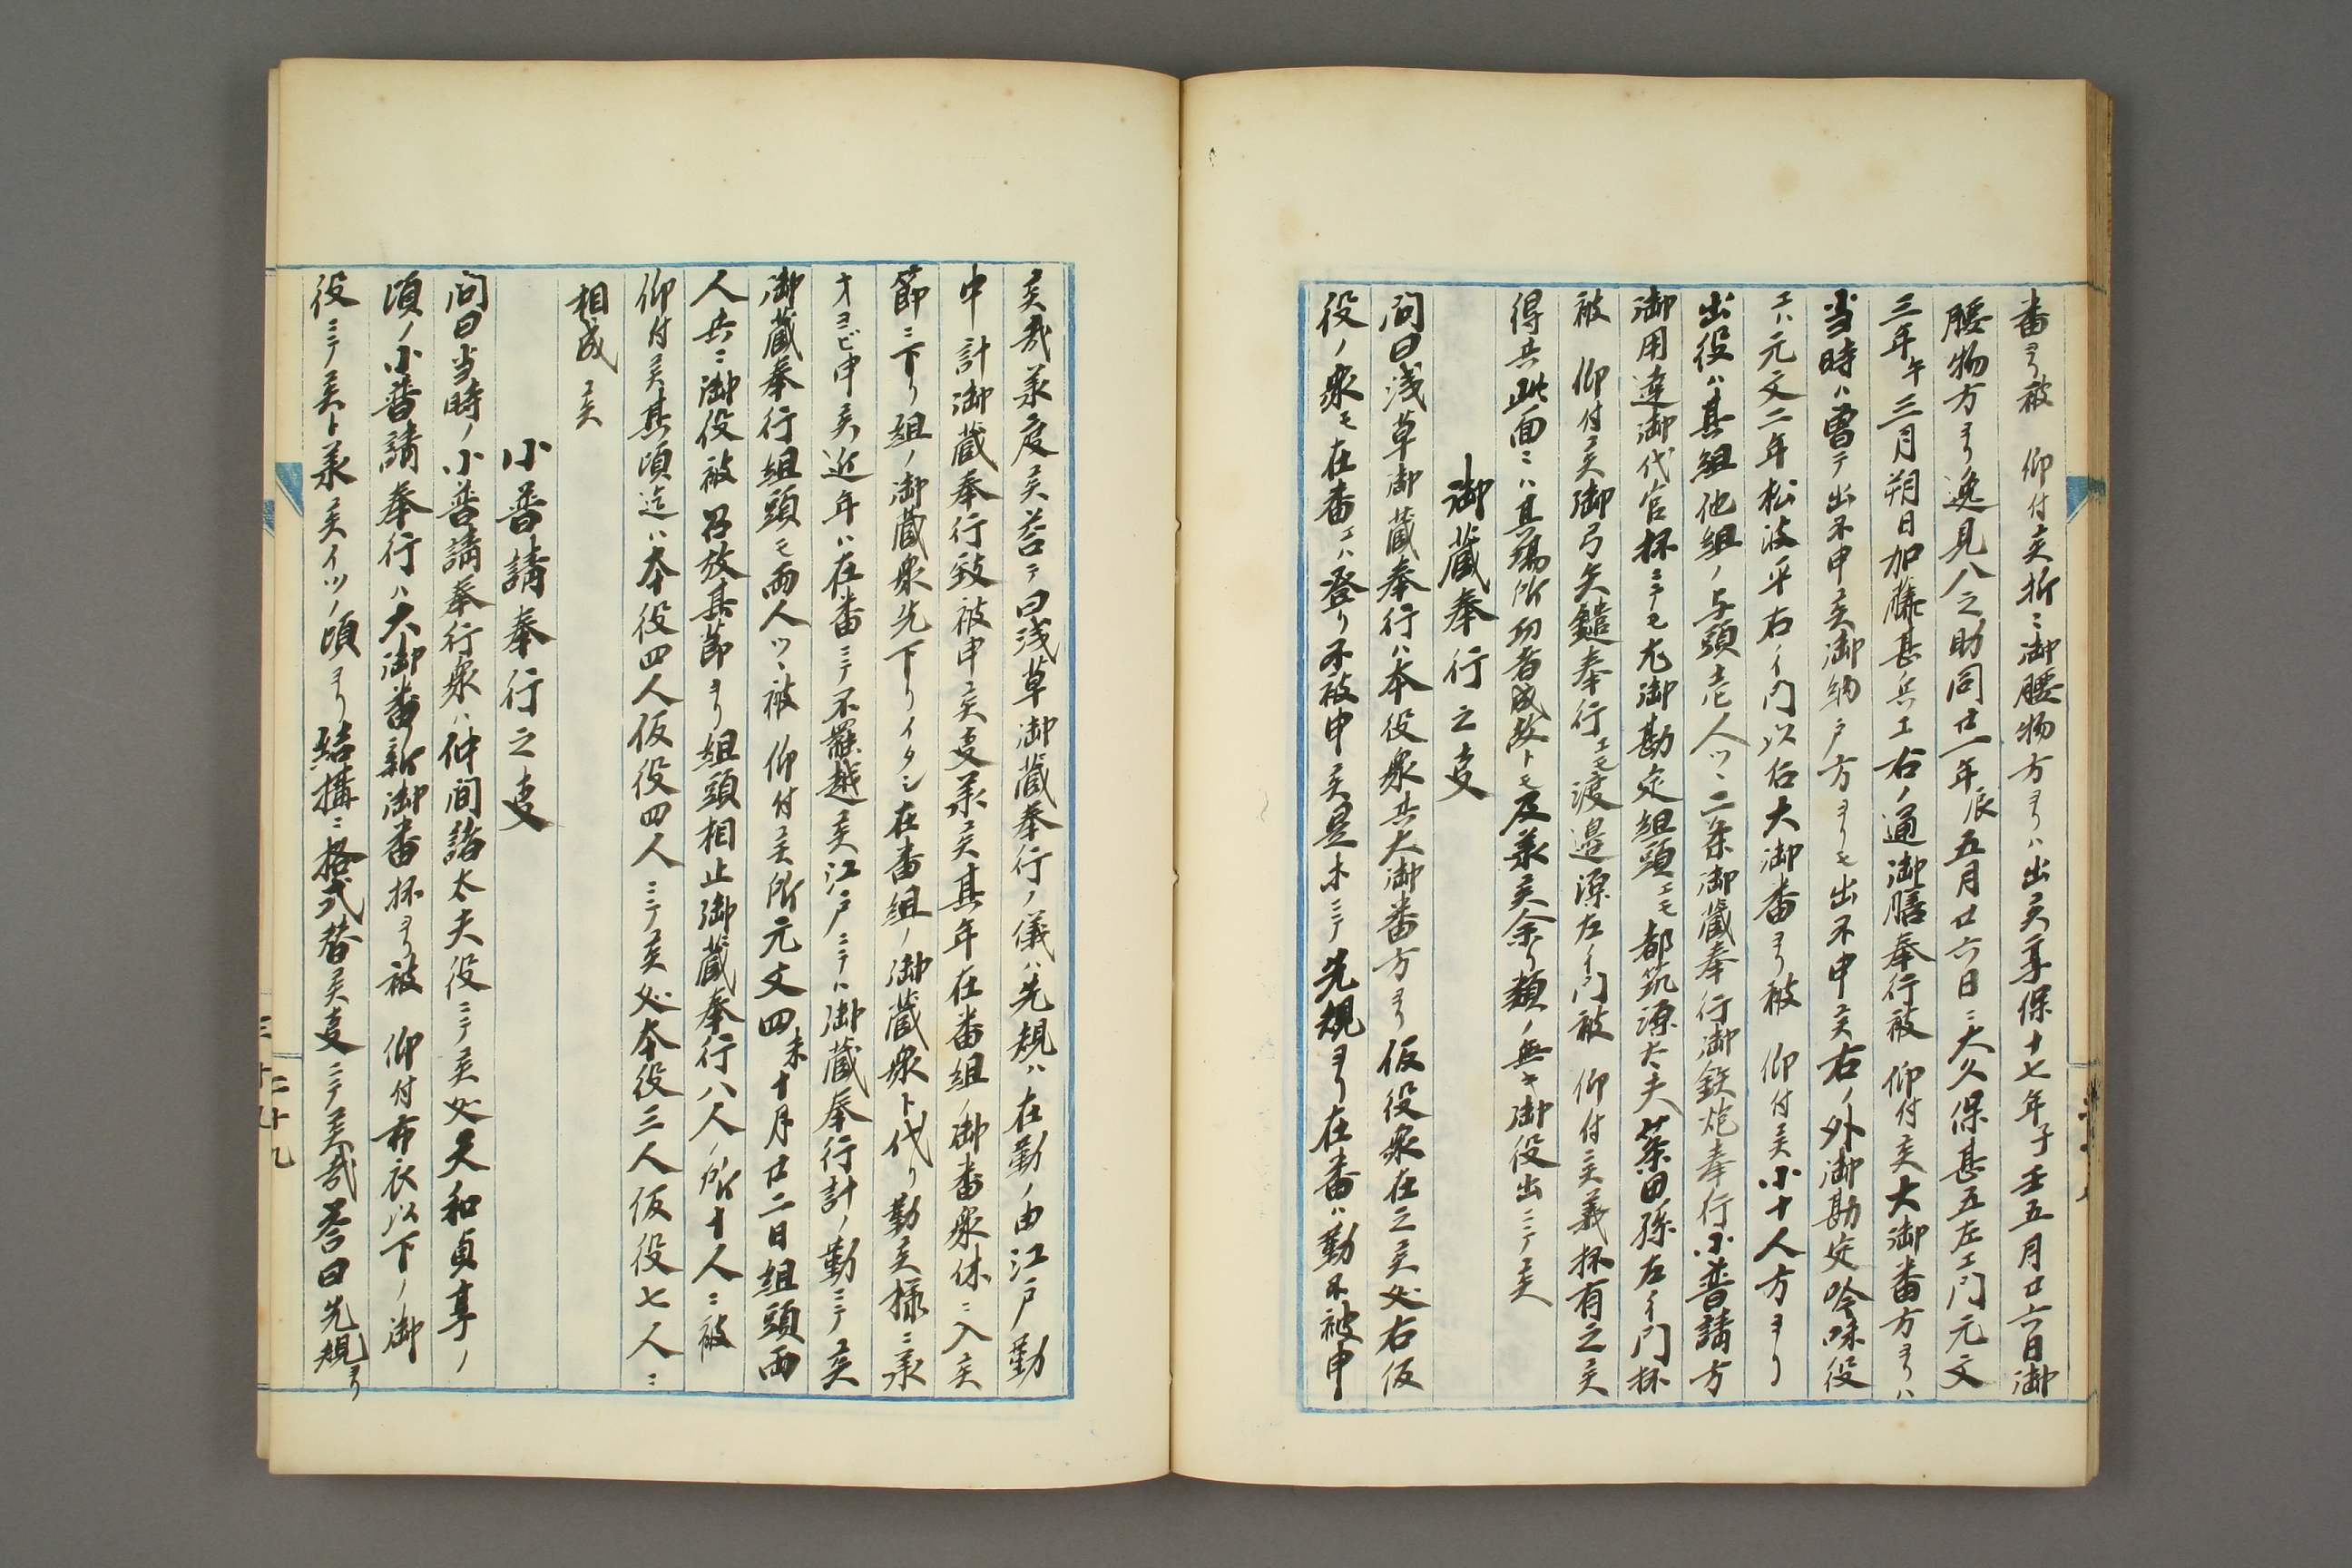 番ヨリ被　仰付候折ニ御腰物方ヨリハ出候享保十七年子壬五月廿六日御
腰物方ヨリ逸見八之助同廿一年辰五月廿六日ニ大久保甚五左エ門元文
三年午三月朔日加藤甚兵エ右ノ通御膳奉行被　仰付候大御番方ヨリハ
当時ハ曽テ出不申候御納戸方ヨリモ出不申候右ノ外御勘定吟味役
エハ元文二年松波平右イ門以后大御番ヨリ被　仰付候小十人方ヨリ
出役ハ其組他組ノ与頭壱人ツヽ二条御蔵奉行御鉄炮奉行小普請方
御用達御代官抔ニテモ尤御勘定組頭エモ都筑源太夫菜田孫左イ門抔
被　仰付候御弓矢鑓奉行エモ渡邉源左イ門被　仰付候義抔有之候
得共此面ニハ其場所功者成故トモ及承候余リ類ノ無キ御役出ニテ候
御蔵奉行之㕝
問曰浅草御蔵奉行ハ本役衆共大御番方ヨリ仮役衆在之候処右仮
役ノ衆モ在番エハ登リ不被申候是ホニテ先規ヨリ在番ハ勤不被申
候哉承度候答テ曰浅草御蔵奉行ノ儀ハ先規ハ在勤ノ由江戸勤
中計御蔵奉行致被申候㕝承候其年在番組ノ御番衆休ニ入候
節ニ下リ組ノ御蔵衆先下リイタシ在番組ノ御蔵衆ト代リ勤候様ニ承
オヨビ申候近年ハ在番ニテ不罷越候江戸ニテハ御蔵奉行計ノ勤ニテ候
御蔵奉行組頭モ両人ツヽ被　仰付候所元文四未十月廿二日組頭両
人共ニ御役被召放其節ヨリ組頭相止御蔵奉行八人ノ所十人ニ被
仰付候其頃迄ハ本役四人仮役四人ニテ候処本役三人仮役七人ニ
相成候
小普請奉行之㕝
問曰当時ノ小普請奉行衆ハ仲間諸太夫役ニテ候処天和貞享ノ
頃ノ小普請奉行ハ大御番新御番抔ヨリ被　仰付布衣以下ノ御
役ニテ候ト承候イツノ頃ヨリ結構ニ格式替候㕝ニテ候哉答曰先規ヨリ
二十九